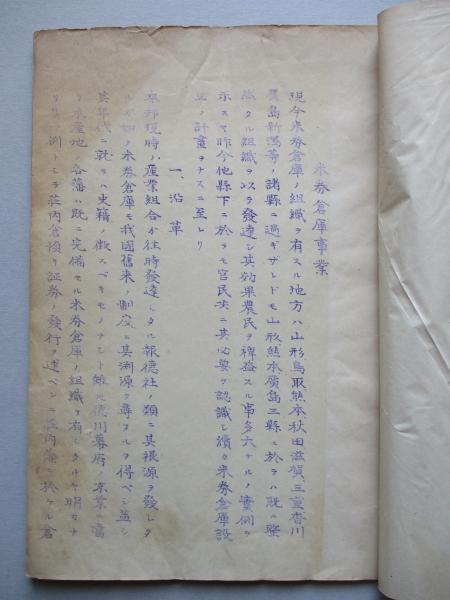 米券倉庫事業
現今米券倉庫ノ組織ヲ有スル地方ハ山形鳥取熊本秋田滋賀三重香川
廣島新潟等ノ諸縣ニ過ギザレドモ山形熊本廣島三縣ニ於テハ既ニ整
然タル組織ヲ以テ發達シ其効果農民ヲ裨益スル事多大ナルノ實例ヲ
示スヤ昨今他縣下ニ於テモ官民共ニ其必要ヲ認識シ續々米券倉庫設
立ノ計畫ヲナスニ至レリ
一、沿革
本邦現時ノ産業組合ガ往時發達シタル報德社ノ類ニ其根源ヲ發シタ
ルガ如ク米券倉庫モ我國舊来ノ制度ニ其淵源ヲ尋ヌルヲ得ベシ蓋シ
其年代ニ就テハ史籍ノ徴スベキモノナシト雖ル德川幕府ノ末葉ニ當
リ米産地ノ各藩ハ既ニ完備セル米券倉庫ノ組織ヲ有シタルヤ明カナ
リ 例トシテ荘内倉預リ証券ノ發行ヲ述ベンニ荘内藩ニ於ケル倉